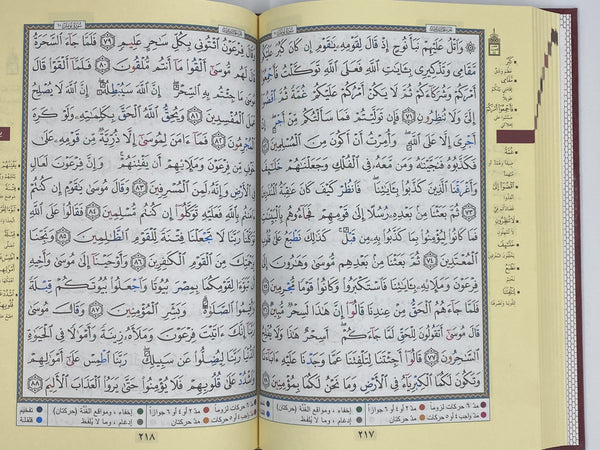 وَٱتْلُ عَلَيْهِمْ نَبَأَ نُوحٍ إِذْ قَالَ لِقَوْمِهِۦ يَٰقَوْمِ إِن كَانَ كَبُرَ عَلَيْكُم
مَّقَامِى وَتَذْكِيرِى بِـَٔايَٰتِ ٱللَّهِ فَعَلَى ٱللَّهِ تَوَكَّلْتُ فَأَجْمِعُوٓا۟
أَمْرَكُمْ وَشُرَكَآءَكُمْ ثُمَّ لَا يَكُنْ أَمْرُكُمْ عَلَيْكُمْ غُمَّةً ثُمَّ ٱقْضُوٓا۟
إِلَىَّ وَلَا تُنظِرُونِ ٧١ فَإِن تَوَلَّيْتُمْ فَمَا سَأَلْتُكُم مِّنْ أَجْرٍ إِنْ
أَجْرِىَ إِلَّا عَلَى ٱللَّهِ وَأُمِرْتُ أَنْ أَكُونَ مِنَ ٱلْمُسْلِمِينَ ٧٢
فَكَذَّبُوهُ فَنَجَّيْنَٰهُ وَمَن مَّعَهُۥ فِى ٱلْفُلْكِ وَجَعَلْنَٰهُمْ خَلَٰٓئِفَ
وَأَغْرَقْنَا ٱلَّذِينَ كَذَّبُوا۟ بِـَٔايَٰتِنَا فَٱنظُرْ كَيْفَ كَانَ عَٰقِبَةُ ٱلْمُنذَرِينَ
٧٣ ثُمَّ بَعَثْنَا مِنۢ بَعْدِهِۦ رُسُلًا إِلَىٰ قَوْمِهِمْ فَجَآءُوهُم بِٱلْبَيِّنَٰتِ
فَمَا كَانُوا۟ لِيُؤْمِنُوا۟ بِمَا كَذَّبُوا۟ بِهِۦ مِن قَبْلُ كَذَٰلِكَ نَطْبَعُ عَلَىٰ قُلُوبِ
ٱلْمُعْتَدِينَ ٧٤ ثُمَّ بَعَثْنَا مِنۢ بَعْدِهِم مُّوسَىٰ وَهَٰرُونَ إِلَىٰ فِرْعَوْنَ
وَمَلَإِي۟هِۦ بِـَٔايَٰتِنَا فَٱسْتَكْبَرُوا۟ وَكَانُوا۟ قَوْمًا مُّجْرِمِينَ ٧٥
فَلَمَّا جَآءَهُمُ ٱلْحَقُّ مِنْ عِندِنَا قَالُوٓا۟ إِنَّ هَٰذَا لَسِحْرٌ مُّبِينٌ ٧٦
قَالَ مُوسَىٰٓ أَتَقُولُونَ لِلْحَقِّ لَمَّا جَآءَكُمْ أَسِحْرٌ هَٰذَا وَلَا يُفْلِحُ
ٱلسَّٰحِرُونَ ٧٧ قَالُوٓا۟ أَجِئْتَنَا لِتَلْفِتَنَا عَمَّا وَجَدْنَا عَلَيْهِ ءَابَآءَنَا
وَتَكُونَ لَكُمَا ٱلْكِبْرِيَآءُ فِى ٱلْأَرْضِ وَمَا نَحْنُ لَكُمَا بِمُؤْمِنِينَ ٧٨
مدّ ٦ حركات لزوماً مدّ ٢ أو ٤ أو ٦ جوازاً إخفاء، ومواقع الغنّة (حركتان)
مدّ واجب ٤ أو ٥ حركات مدّ حركتان إدغام، وما لا يُلفظ
٢١٧
وَقَالَ فِرْعَوْنُ ٱئْتُونِى بِكُلِّ سَٰحِرٍ عَلِيمٍ ٧٩ فَلَمَّا جَآءَ ٱلسَّحَرَةُ
قَالَ لَهُم مُّوسَىٰٓ أَلْقُوا۟ مَآ أَنتُم مُّلْقُونَ ٨٠ فَلَمَّآ أَلْقَوْا۟ قَالَ
مُوسَىٰ مَا جِئْتُم بِهِ ٱلسِّحْرُ إِنَّ ٱللَّهَ سَيُبْطِلُهُۥٓ إِنَّ ٱللَّهَ لَا يُصْلِحُ
عَمَلَ ٱلْمُفْسِدِينَ ٨١ وَيُحِقُّ ٱللَّهُ ٱلْحَقَّ بِكَلِمَٰتِهِۦ وَلَوْ كَرِهَ
ٱلْمُجْرِمُونَ ٨٢ فَمَآ ءَامَنَ لِمُوسَىٰٓ إِلَّا ذُرِّيَّةٌ مِّن قَوْمِهِۦ عَلَىٰ
خَوْفٍ مِّن فِرْعَوْنَ وَمَلَإِي۟هِمْ أَن يَفْتِنَهُمْ وَإِنَّ فِرْعَوْنَ لَعَالٍ
فِى ٱلْأَرْضِ وَإِنَّهُۥ لَمِنَ ٱلْمُسْرِفِينَ ٨٣ وَقَالَ مُوسَىٰ يَٰقَوْمِ إِن كُنتُمْ
ءَامَنتُم بِٱللَّهِ فَعَلَيْهِ تَوَكَّلُوٓا۟ إِن كُنتُم مُّسْلِمِينَ ٨٤ فَقَالُوا۟ عَلَى ٱللَّهِ
تَوَكَّلْنَا رَبَّنَا لَا تَجْعَلْنَا فِتْنَةً لِّلْقَوْمِ ٱلظَّٰلِمِينَ ٨٥ وَنَجِّنَا
بِرَحْمَتِكَ مِنَ ٱلْقَوْمِ ٱلْكَٰفِرِينَ ٨٦ وَأَوْحَيْنَآ إِلَىٰ مُوسَىٰ وَأَخِيهِ
أَن تَبَوَّءَا لِقَوْمِكُمَا بِمِصْرَ بُيُوتًا وَٱجْعَلُوا۟ بُيُوتَكُمْ قِبْلَةً
وَأَقِيمُوا۟ ٱلصَّلَوٰةَ وَبَشِّرِ ٱلْمُؤْمِنِينَ ٨٧ وَقَالَ مُوسَىٰ
رَبَّنَآ إِنَّكَ ءَاتَيْتَ فِرْعَوْنَ وَمَلَأَهُۥ زِينَةً وَأَمْوَٰلًا فِى ٱلْحَيَوٰةِ
ٱلدُّنْيَا رَبَّنَا لِيُضِلُّوا۟ عَن سَبِيلِكَ رَبَّنَا ٱطْمِسْ عَلَىٰٓ أَمْوَٰلِهِمْ
وَٱشْدُدْ عَلَىٰ قُلُوبِهِمْ فَلَا يُؤْمِنُوا۟ حَتَّىٰ يَرَوُا۟ ٱلْعَذَابَ ٱلْأَلِيمَ ٨٨
مدّ ٦ حركات لزوماً مدّ ٢ أو ٤ أو ٦ جوازاً إخفاء، ومواقع الغنّة (حركتان) تفخيم
مدّ واجب ٤ أو ٥ حركات مدّ حركتان إدغام، وما لا يُلفظ قلقلة
٢١٨